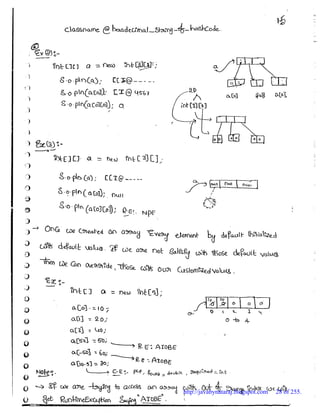 15
classname @ hexadecimal_string_of_hashCode
Ex①:-
int[][] a = new int[3][2];
S.o.pln(a); [[I@-----
S.o.pln(a[0]); [I@4567
S.o.pln(a[0][0]); 0
a
2D
int [3][2]
a[0] a[1] a[2]
Ex②:-
int[][] a = new int[3][];
S.o.pln(a); [[I@-----
S.o.pln(a[0]); null
S.o.pln(a[0][0]); R.E:. NPE
a
→ Once we created an array Every element by default initialized
with default values. If we are not satisfy with those default values
then we can override those with our customized values.
Ex:-
int[] a = new int[5];
a[0] = 10;
a[1] = 20;
a[2] = 40;
a[50] = 50; → R.E: AIOBE
a[-50] = 60; → R.E: AIOBE
a[10.5] = 30; → C.E:- PLP, found: double, required: int
0 1 2 3 4
0 to 4
Note:-
→ If we are trying to access an array with out of range index we will
get RuntimeException Saying "AIOBE".
http://javabynataraj.blogspot.com 28 of 255.